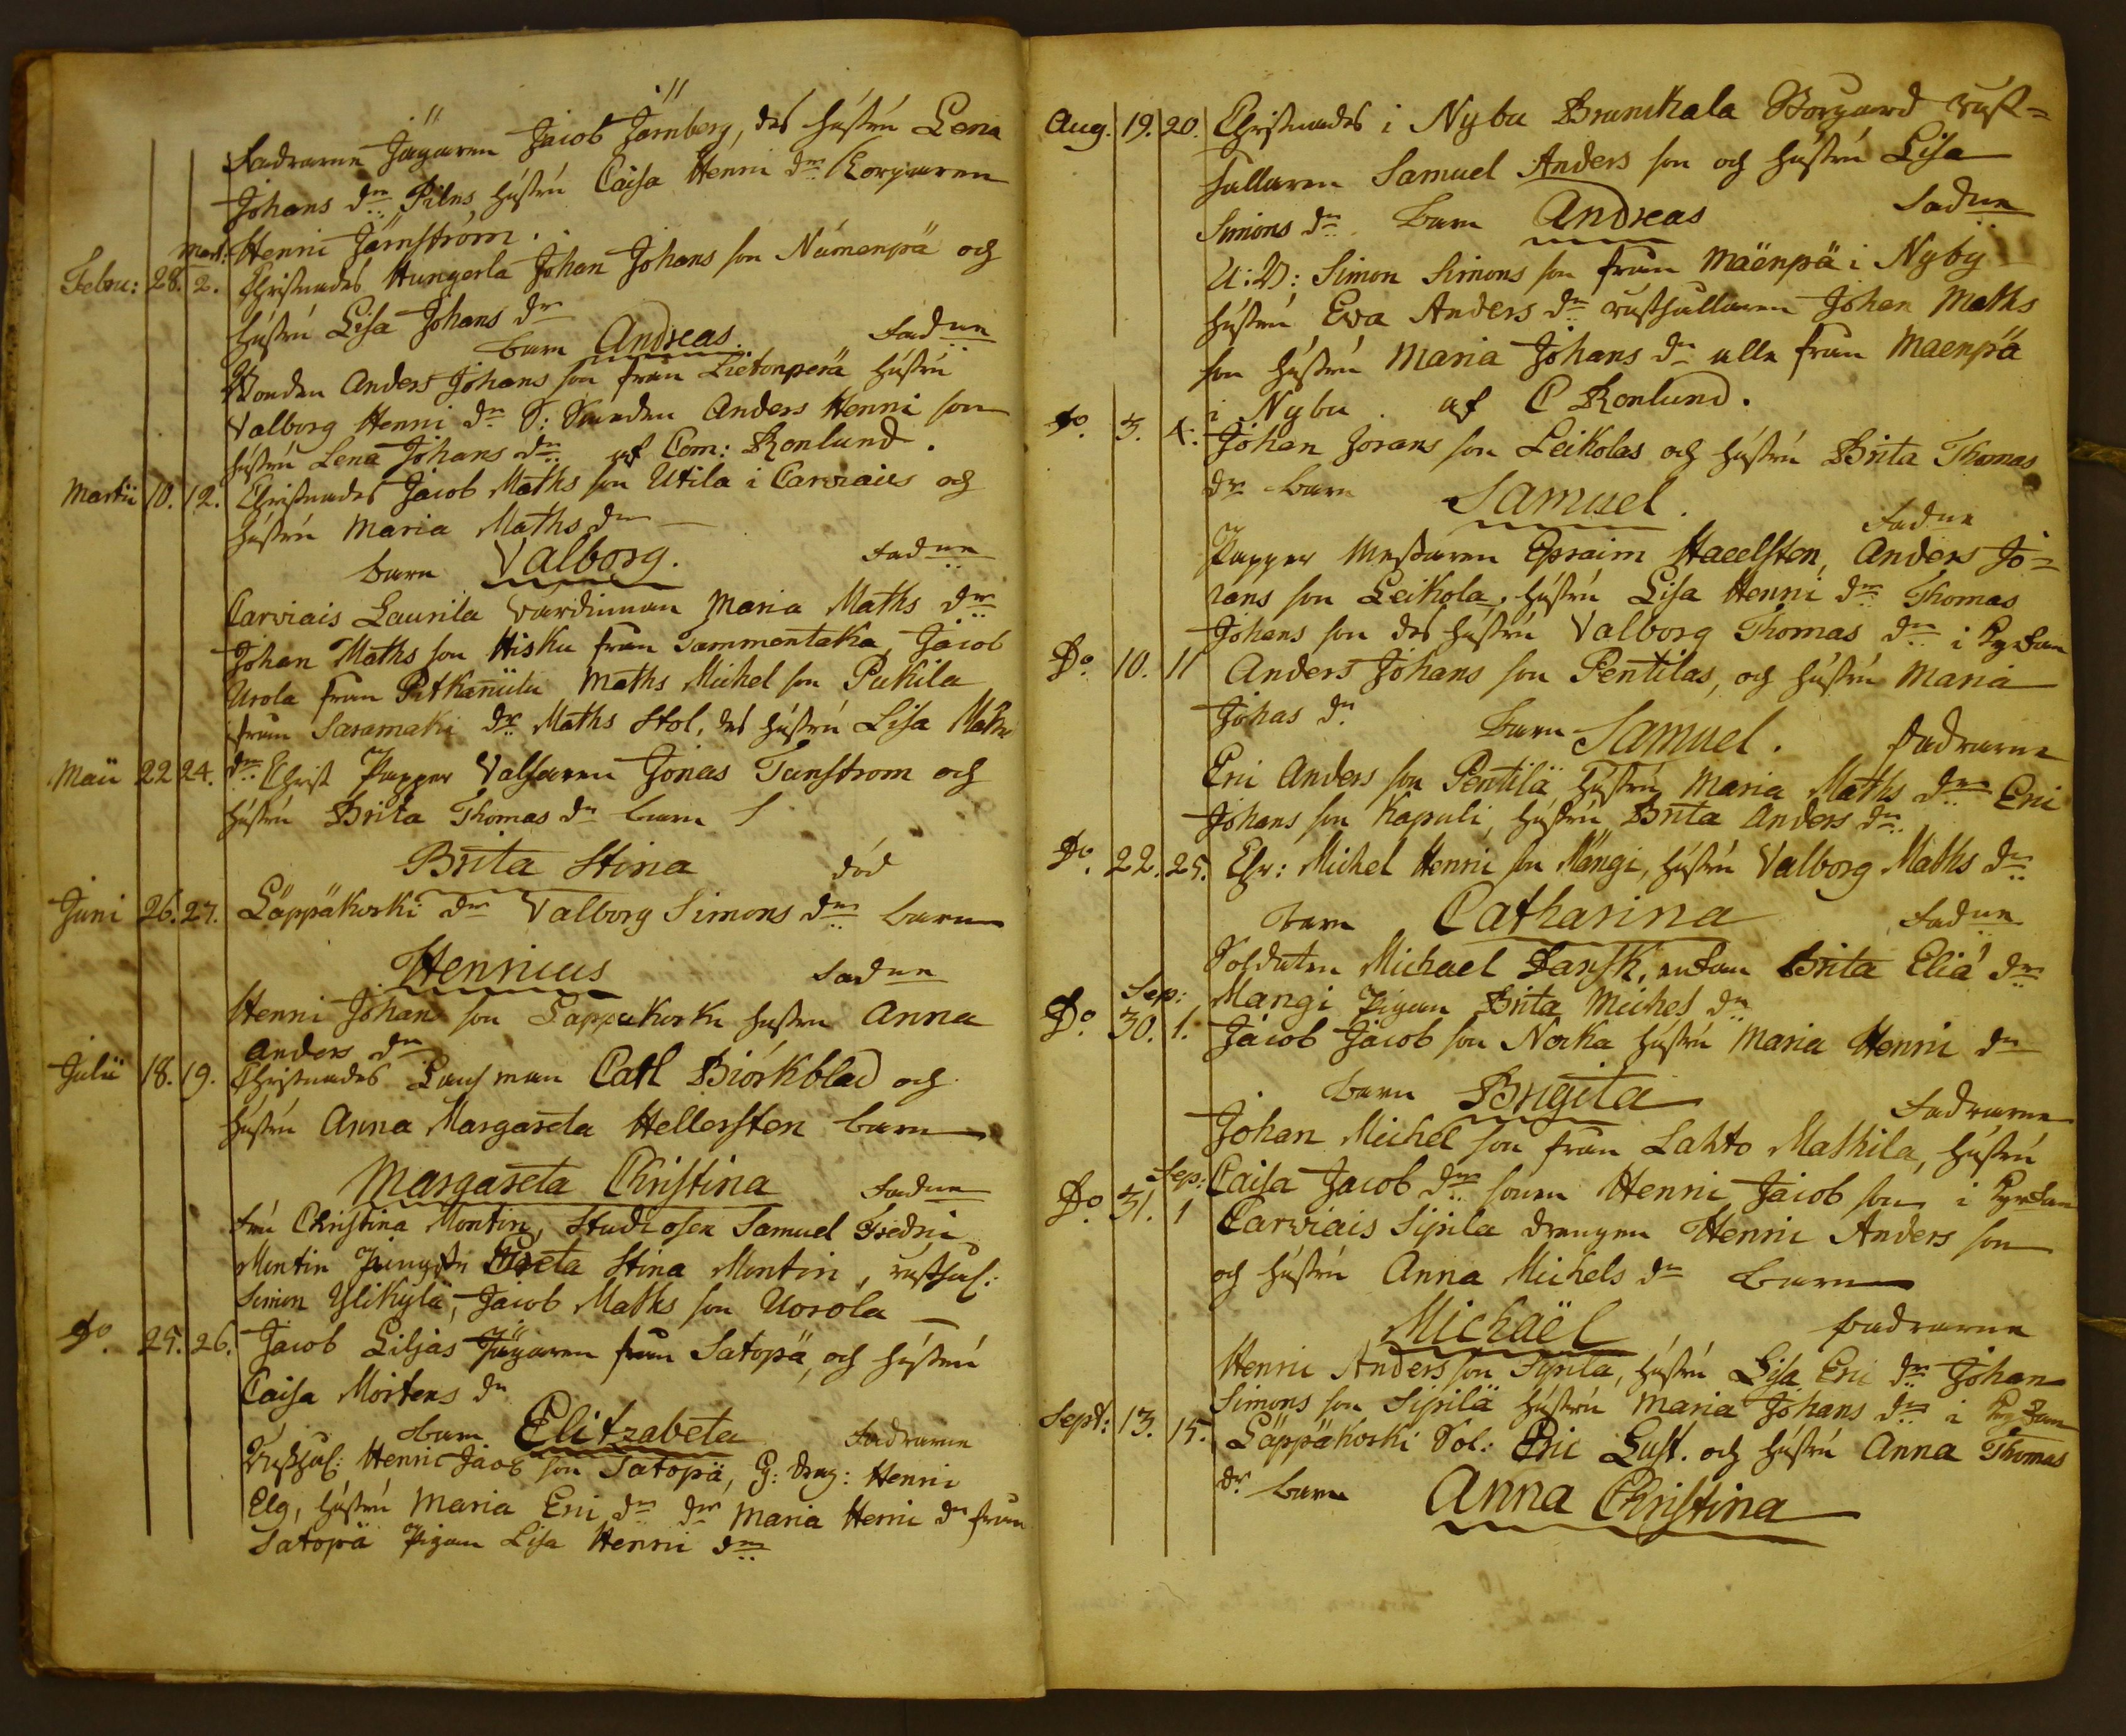 Fadrarne Jägaren Jacob Järnberg, des hustru Lena
Johans dr Pilns, hustru Caisa Henric dr Korparen
Henric Jernström.
Febru: 28. Mart. 2. Christnades Hungerla Johan Johans son Numenpä och
hustru Lisa Johans dr
barn Andreas. Fadne
Bonden Anders Johans son från Lietonperä hustru
Valborg Henric dr S: Bonden Anders Henric son
hustru Lena Johans dr af Com: Ronlund.
Martii 10. 12. Christnades Jacob Maths son Utila i Carviais och
hustru Maria Maths dr
barn Valborg. Fadne
Carviais Laurila värdinnan Maria Maths dr
Johan Maths son Hisku från Tammentaka, Jacob
Urola från Pitkäniitu Maths Michel son Pukila
från Saramaki dr Maths Stol, des hustru Lisa Maths
Maii 22 24. dr Christ Papper Valsaren Jonas Tunstrom och
hustru Brita Thomas dr barn
Brita Stina död
Juni 26. 27. Läppäkoski dr Valborg Simons dr barn
Henricus Fadne
Henric Johans son Lappakoski hustru Anna
Anders dr
Julii 18. 19. Christnades Lansman Carl Biörkblad och
hustru Anna Margareta Hellersten barn
Margareta Christina Fadne
Fru Christina Montin, Studiosen Samuel Fredric
Montin Jungfru Greta Stina Montin, rusthol:
Simon Ylikylä, Jacob Maths son Uorola
Do. 25. 26. Jacob Liljas Jägaren från Satopä, och hustru
Caisa Mörtens dr
barn Elitzabeta Fadrarne
Rusthol: Henric Jacob son Satopä, G: drag: Henric
Elg, hustru Maria Eric dr dr Maria Henric dr från
Satopä Pigan Lisa Henric dr
Aug. 19. 20. Christnades i Nyby Brunskala Storgård rust=
hallaren Samuel Anders son och hustru Lisa
Simons dr barn Andreas Fadne
U: V: Simon Simons son från Mäenpä i Nyby
hustru Eva Anders dr rusthallaren Johan Maths
son hustru Maria Johans dr alla från Maenpä
i Nyby. af C Ronlund.
Do. 3. 4. Johan Jorans son Leikolas och hustru Brita Thomas
dr barn Samuel. Fadne
Papper Mestaren Epraim Hacelsten, Anders Jo=
rans son Leikola, hustru Lisa Henric dr Thomas
Johans son des hustru Valborg Thomas dr i Kyrkan
Do. 10. 11 Anders Johans son Pentilas, och hustru Maria
Johas dr barn Samuel. Fadrarne
Eric Anders son Pentilä hustru Maria Maths dr Eric
Johans son Kapuli, hustru Brita Anders dr
Do. 22. 25. Chr: Michel Henric son Mängi, hustru Valborg Maths dr
barn Catharina Fadne
Soldaten Michael Dansk, enkan Brita Elia dr
Mangi Pigan Brita Michel dr
Do. 30. Sep: 1. Jacob Jacob son Nocka hustru Maria Henric dr
barn Brigita Fadrarne
Johan Michel son från Lahto Mathila, hustru
Caisa Jacob dr sonen Henric Jacob son i Kyrkan
Do. 31. Sep: 1 Carviais Sipila drengen Henric Anders son
och hustru Anna Michels dr barn
Michaël Fadrarne
Henric Anders son Sipila, hustru Lisa Eric dr Johan
Simons son Sipilä hustru Maria Johans dr i Kyrkan
Sept: 13. 15. Läppäkoski Sol: Eric Lust. och hustru Anna Thomas
dr barn Anna Christina